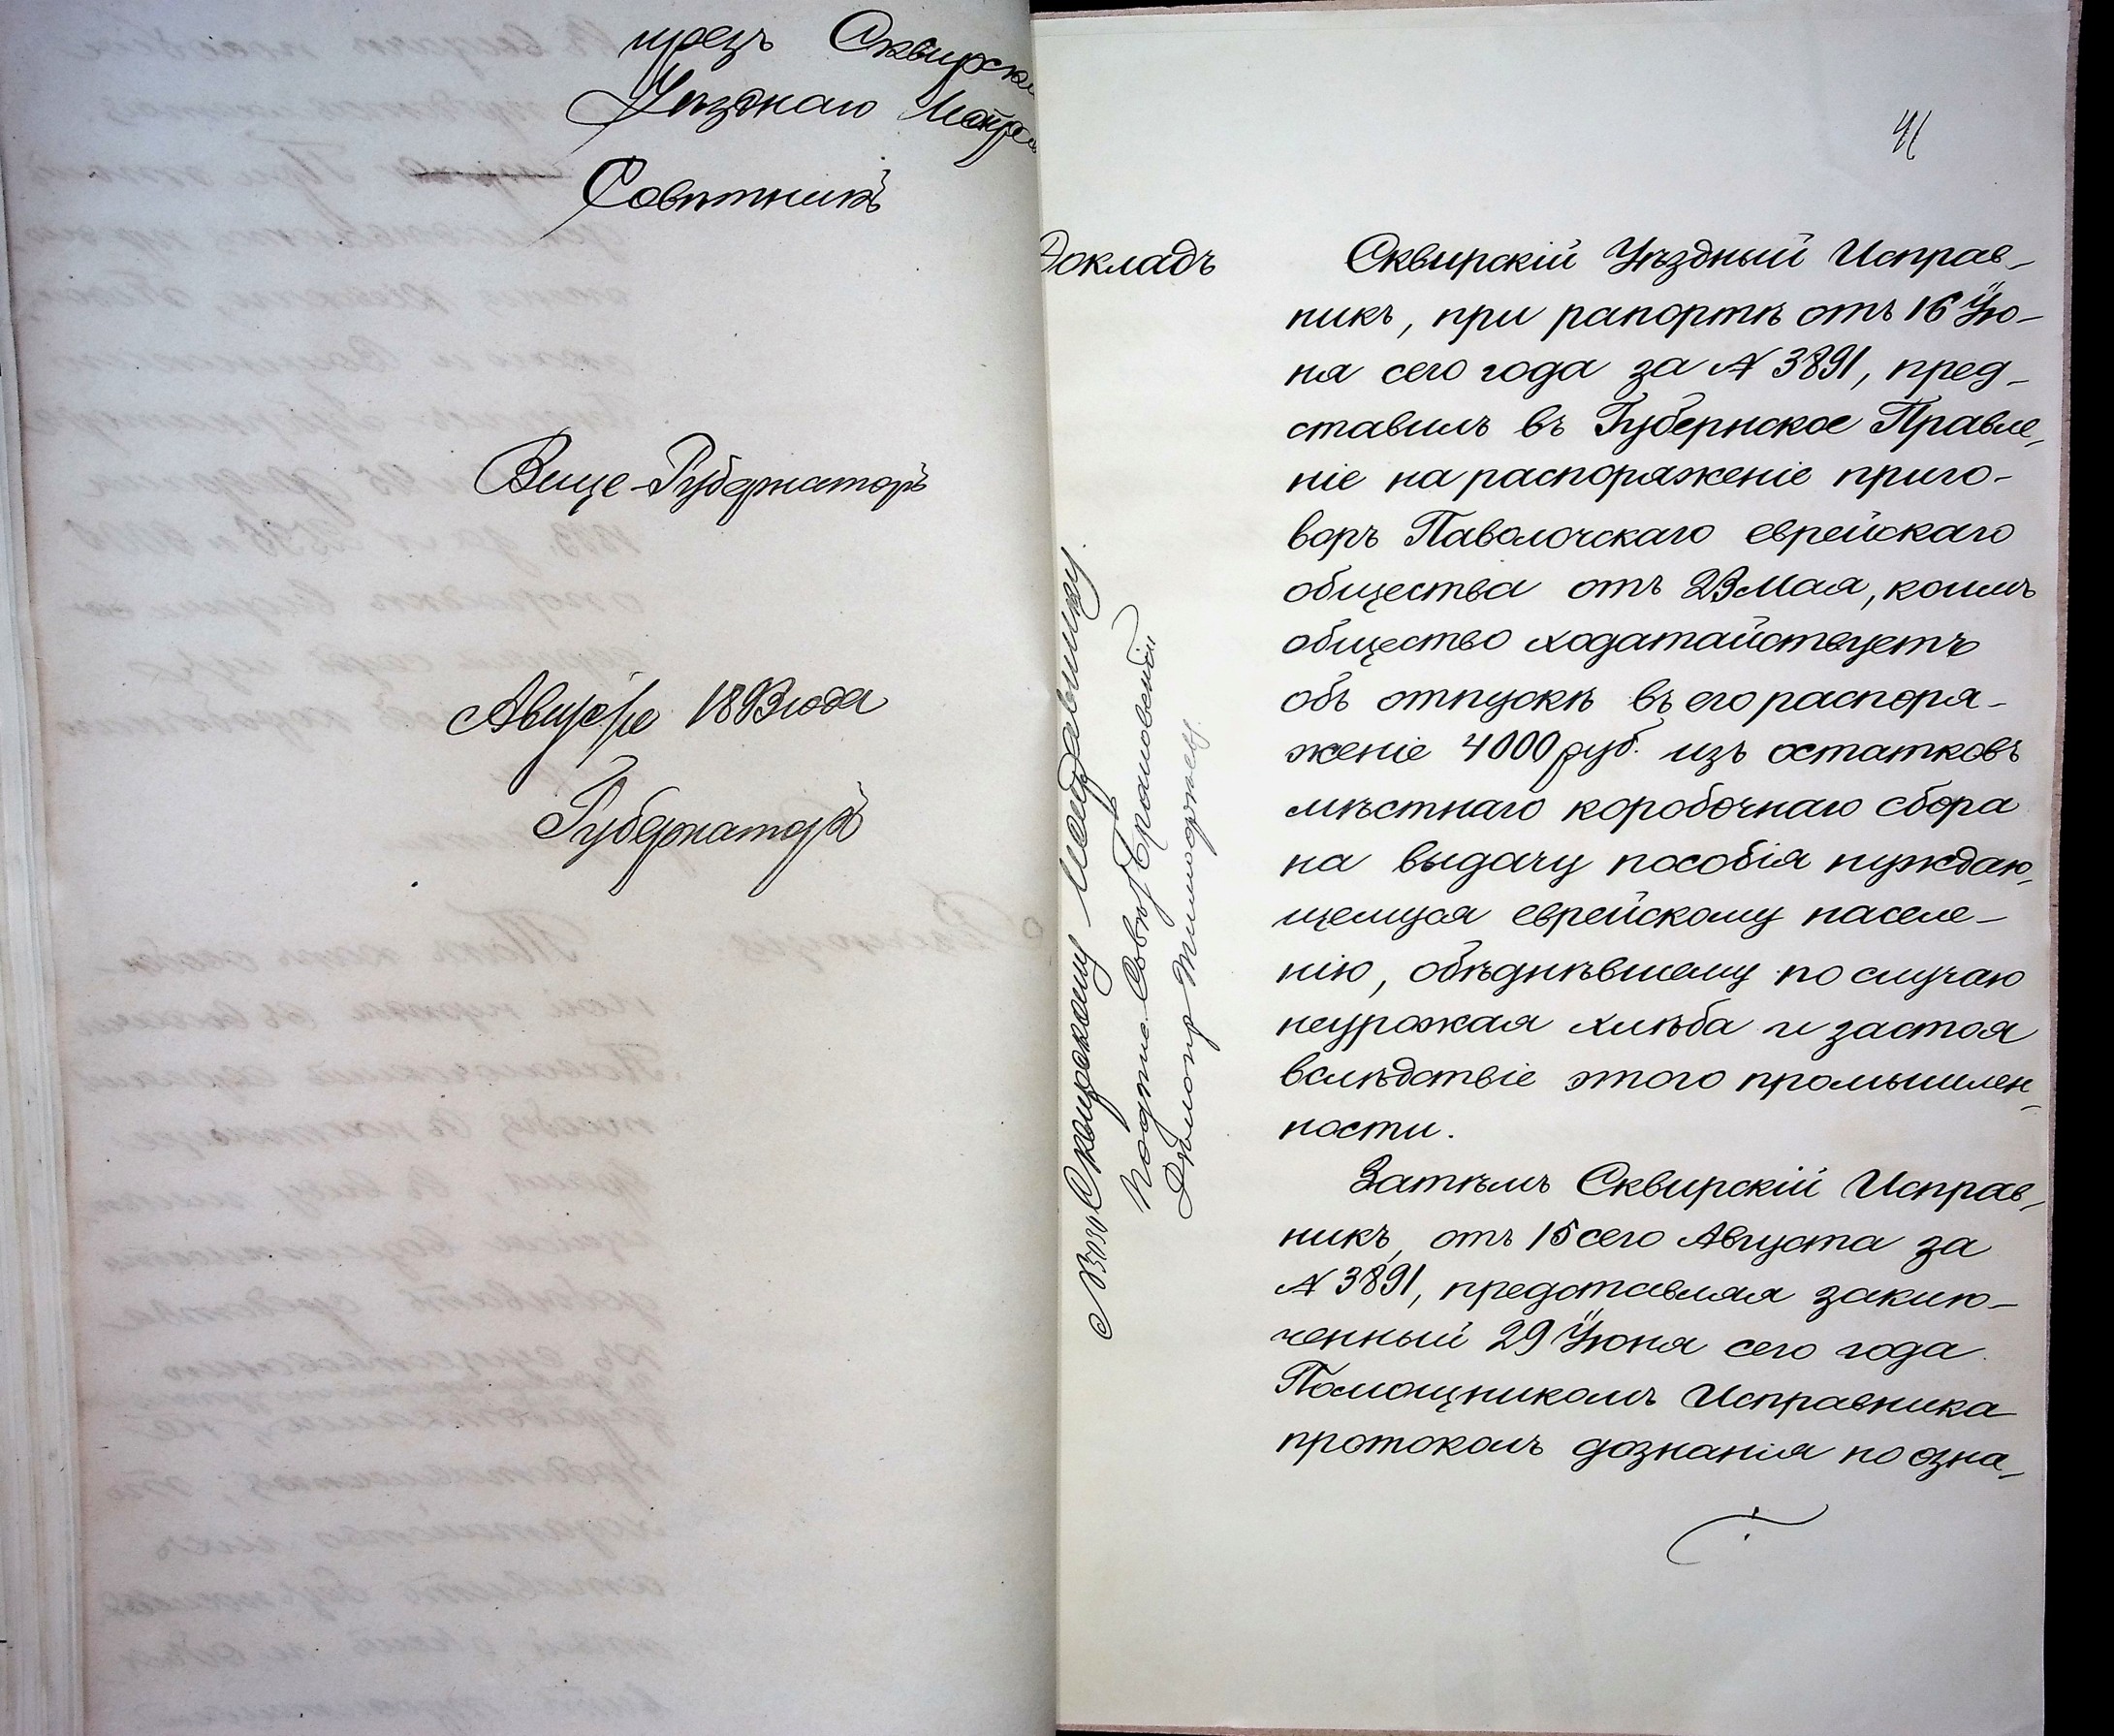 чрезъ Сквирска
Уѣзднаго Испра
Совѣтникъ
Вице-Губернаторъ
Августа 1893 года
Губернаторъ
41
Докладъ
Сквирскій Уѣздный Исправ-
никъ, при рапортѣ отъ 16 Ію-
ня сего года за № 3891, пред-
ставилъ въ Губернское Правле-
ніе на распоряженіе приго-
воръ Паволочскаго еврейскаго
общества отъ 23 Мая, коимъ
общество ходатайствуетъ
объ отпускѣ въ его распоря-
женіе 4000 руб. изъ остатковъ
мѣстнаго коробочнаго сбора
на выдачу пособія нуждаю-
щемуся еврейскому населе-
нію, обѣднѣвшему по случаю
неурожая хлѣба и застоя
вслѣдствіе этого промышлен-
ности.
Затѣмъ Сквирскій Исправ-
никъ, отъ 15 сего Августа за
№ 3891, представляя заклю-
ченный 29 Іюня сего года
Помощникомъ Исправника
протоколъ дознанія по озна-
Сквирскому Исправнику
Подпис. Совѣт.